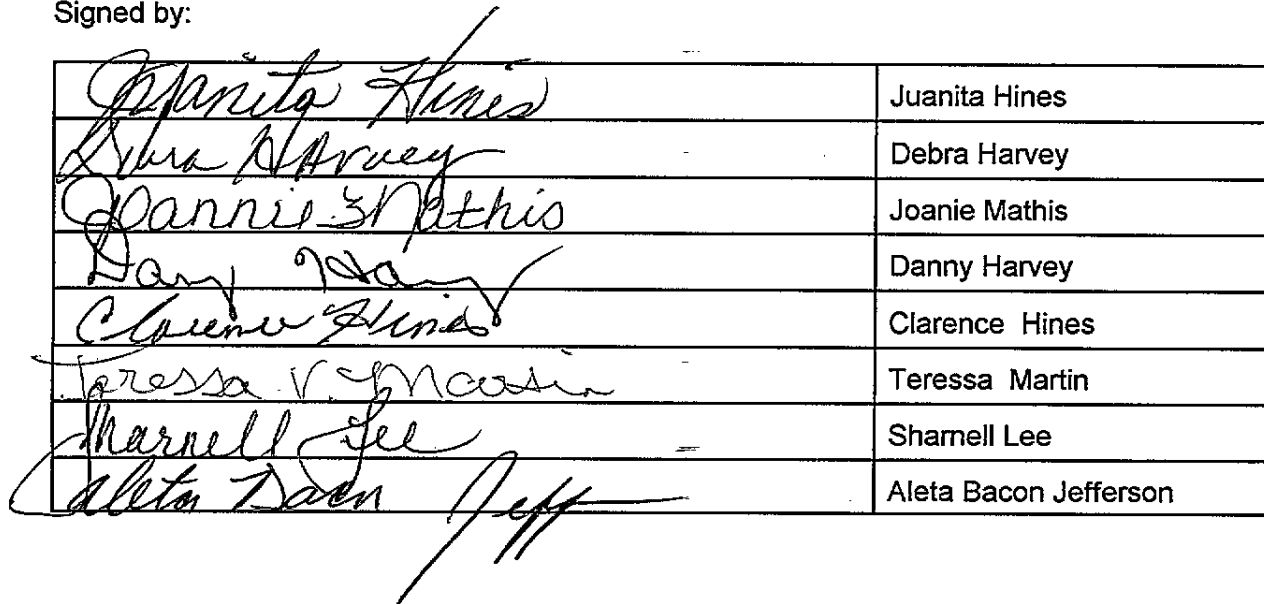 Signed by:
Juanita Hines Juanita Hines
Debra Harvey Debra Harvey
Joannie Mathis Joanie Mathis
Danny Harvey Danny Harvey
Clarence Hines Clarence Hines
Teressa V. Martin Teressa Martin
Sharnell Lee Sharnell Lee
Aleta Bacon Jeff Aleta Bacon Jefferson